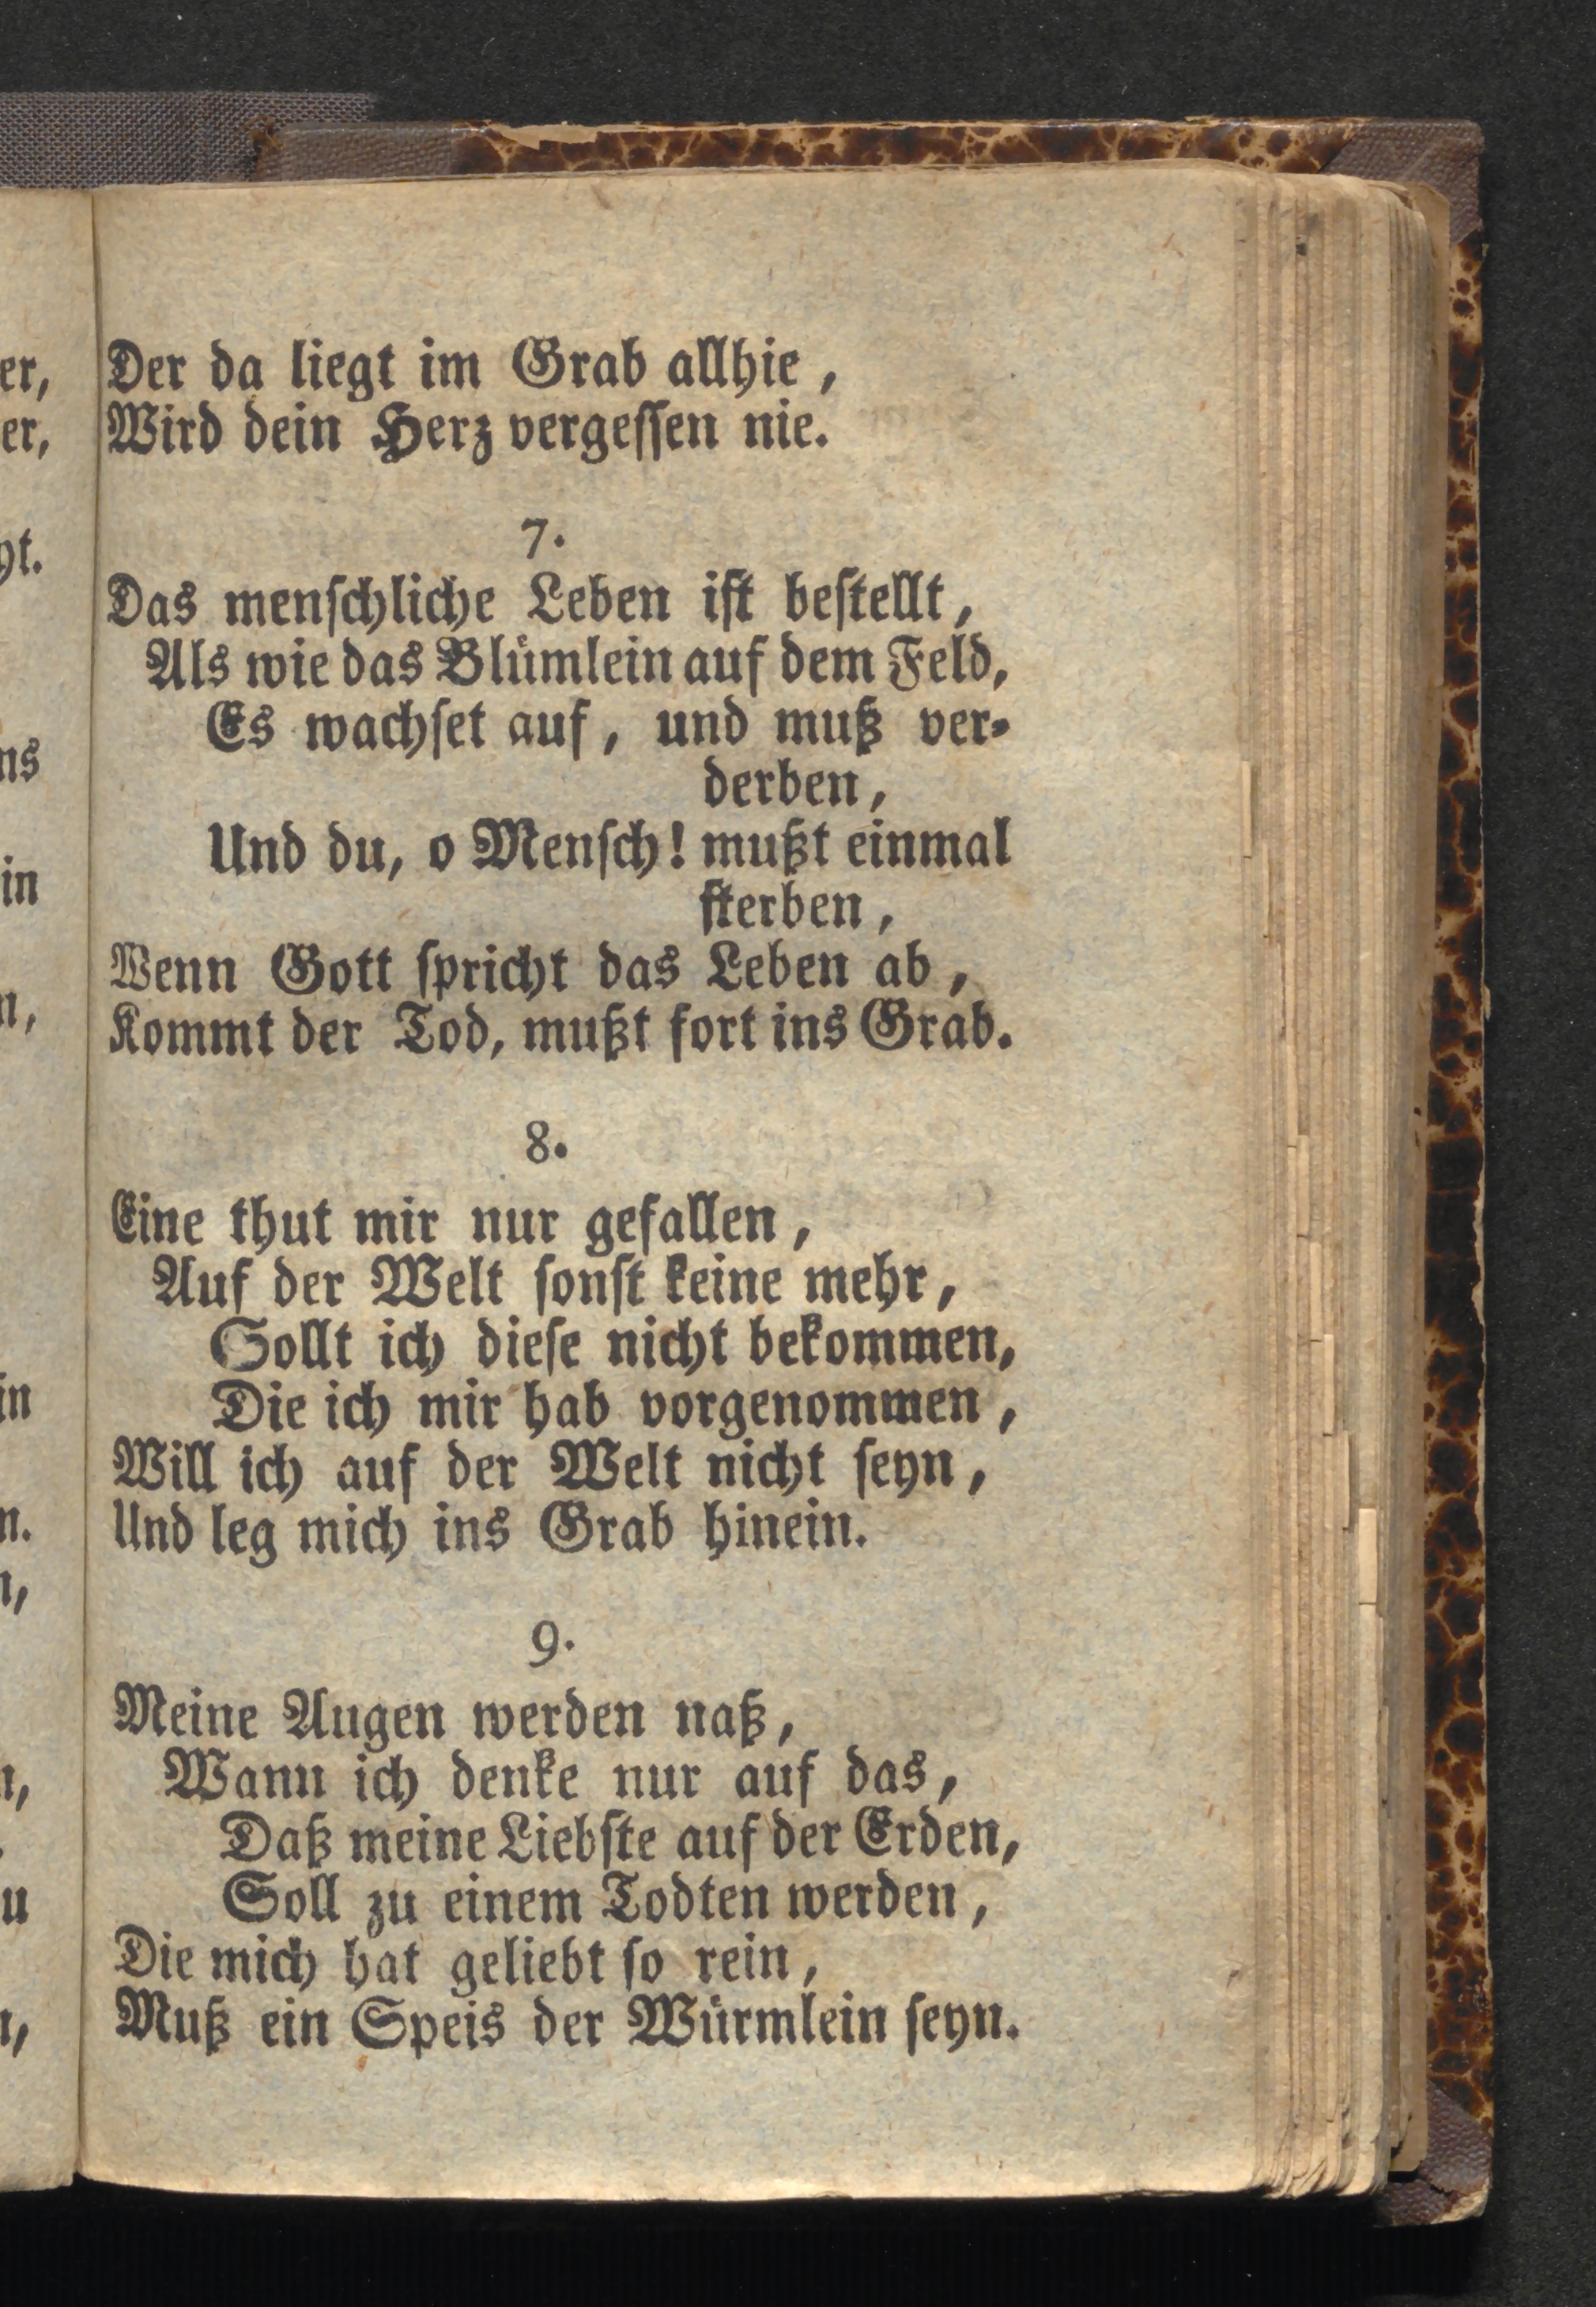 Der da liegt im Grab allhie,
Wird dein Herz vergeſſen nie.
7.
Das menſchliche Leben iſt beſtellt,
Als wie das Blümlein auf dem Feld,
Es wachſet auf, und muß ver-
derben,
Und du, o Menſch! mußt einmal
ſterben,
Wenn Gott ſpricht das Leben ab,
Kommt der Tod, mußt fort ins Grab.
8.
Eine thut mir nur gefallen,
Auf der Welt ſonſt keine mehr,
Sollt ich dieſe nicht bekommen,
Die ich mir hab vorgenommen,
Will ich auf der Welt nicht ſeyn,
Und leg mich ins Grab hinein.
9.
Meine Augen werden naß,
Wann ich denke nur auf das,
Daß meine Liebſte auf der Erden,
Soll zu einem Todten werden,
Die mich hat geliebt ſo rein,
Muß ein Speis der Würmlein ſeyn.